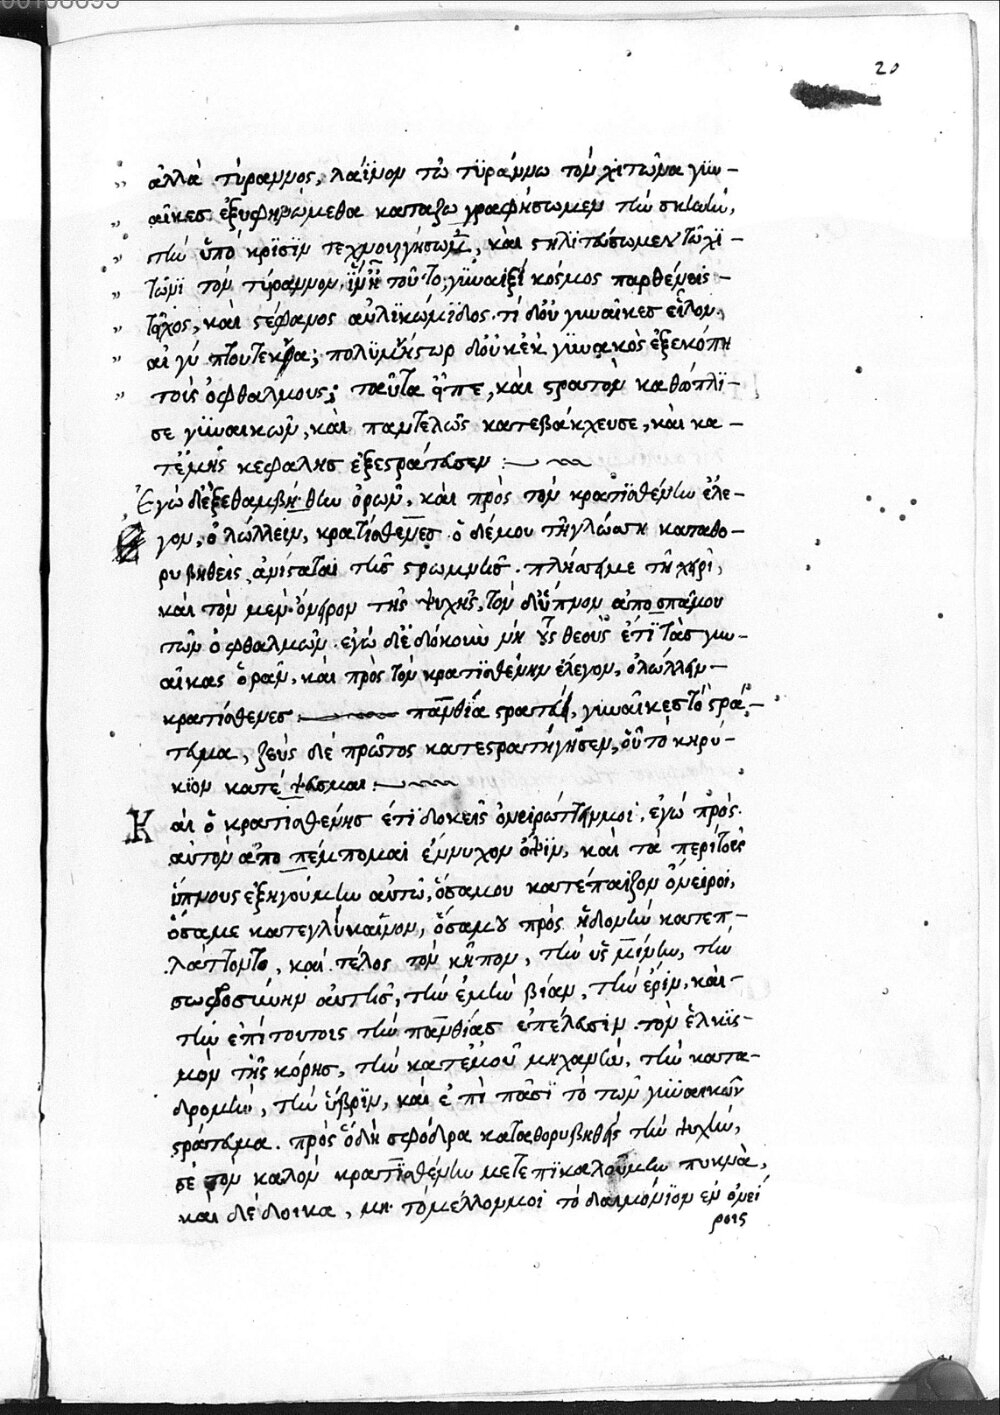 20
ἀλλὰ τύραννος, λάϊνον τῶ τϋράννω τὸν χιτῶνα γϋν-
αῖκες ἐξυφηνώμεθα καταξω γραφήσωμεν τὴν σκηνὴν,
τὴν ὑπόκρϊσϊν τεχνουργήσωμεν, καὶ στηλϊτεύσωμεν τῶ χϊ-
τῶνι τὸν τύραννον, τοῦτο γϋναιξὶ κόσμος παρθένοις
τεῖχος, καὶ στέφανος αὐλϊκωμϊδος. τί δ' οὐ γυναῖκες εἷλον,
αἰγύπτου τέκνα; πολϋμήστωρ δ' οὐκ ἐκ γϋναικὸς ἐξεκόπη
τοὺς ὀφθαλμους; ταῦτα εἶπε, καὶ στρατὸν καθώπλϊ-
σε γϋναικῶν, καὶ παντελῶς κατεβάκχευσε, καὶ κα-
τ' ἐμῆς κεφαλῆς ἐξεστράτευσεν:
Ἐγὼ δ' ἐξεθαμβήθην ὁρῶν, καὶ πρὸς τὸν κρατισθένην ἔλε-
γον, ὀλώλλειν, κρατίσθενες. ὁ δέ μου τῆ γλώσση καταθο-
ρυβηθεὶς ἀνίσταται τῆς στρωμνῆς. πλήσει με τῆ χειρὶ,
καὶ τὸν μὲν ὄνειρον τῆς ψυχῆς, τὸν δ' ὕπνον ἀποσπᾶ μου
τῶν ὀφθαλμῶν. ἐγὼ δ' ἐδόκουν μὴ τοὺς θεοὺς ἔτϊ τὰς γυν-
αῖκας ὁρᾶν, καὶ πρὸς τὸν κρατϊσθένην ἔλεγον, ὀλώλλειν
κρατίσθενες πανθία στρατηγεῖ, γυναῖκες τὸ στρά-
τευμα, ζεὺς δὲ πρῶτος κατεστρατήγησεν, οὗ τὸ κηρύ-
κϊον κατέψευσμαι:
Καὶ ὁ κρατισθένης ἔτϊ δοκεῖς ὀνειρώττειν μοι, ἐγὼ πρὸς
αὐτὸν ἀποπέμπομαι ἔννυχον ὄψϊν, καὶ τὰ περὶ τοὺς
ὕπνους ἐξηγούμην αὐτῶ, ὅσα μου κατέπαιζον ὄνειροι,
ὅσα με κατεγλύκαϊνον, ὅσα μου πρὸς ἡδονὴν κατεπ-
λάττοντο, καὶ τέλος τὸν κῆπον, τὴν ὑσμίνην, τὴν
σωφροσύνην αὐτῆς, τὴν ἐμὴν βίαν, τὴν ἔριν, καὶ
τὴν ἐπὶ τούτοις τὴν πανθίας ἐπέλευσιν. τὸν ἑλκϋσ-
μὸν τῆς κόρης, τὴν κατ' ἐμοῦ μηχανὴν, τὴν κατα-
δρομὴν, τὴν ὕβρϊν, καὶ ἐπὶ πᾶσϊ τὸ τῶν γϋναικῶν
στράτευμα. πρὸς ὃ δὴ σφόδρα καταθορυβηθεὶς τὴν ψυχὴν,
σὲ τὸν καλὸν κρατϊσθένην μετεπϊκαλούμην πυκνὰ,
καὶ δέδοικα, μὴ τὸ μέλλον μοι τὸ δαιμόνϊον ἐν ὀνεί
ροις